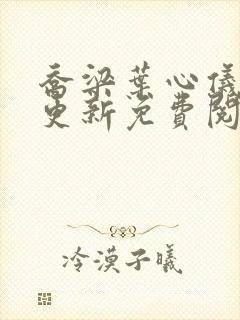 喬梁葉心儀
更新免費閱
冷漠子曦